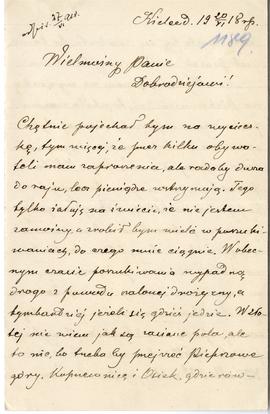 Kielce d. 19 20/VI 18 r.
1189
Wielmożny Panie
Dobrodzieju!
Chętnie pojechał bym na wyciecz-
kę, tym więcej, że przez kilku obywa-
teli mam zaproszenia, ale radaby dusza
do raju, lecz pieniądze wstrzymują. Tego
tylko żałuję na świecie, że nie jestem
zamożny, a zrobił bym wiele w poszuki-
waniach, do czego mnie ciągnie. W obec-
nym czasie poszukiwania wypadną
drogo z powodu szalonej drożyzny, a
tymbardziej jeżeli się gdzieś jedzie.
tej nie wiem jak są zasiane pola, ale
to nic, bo trzeba by przejrzeć Pieprzowe
góry, Koprzewnicę i Osiek, gdzie rów-